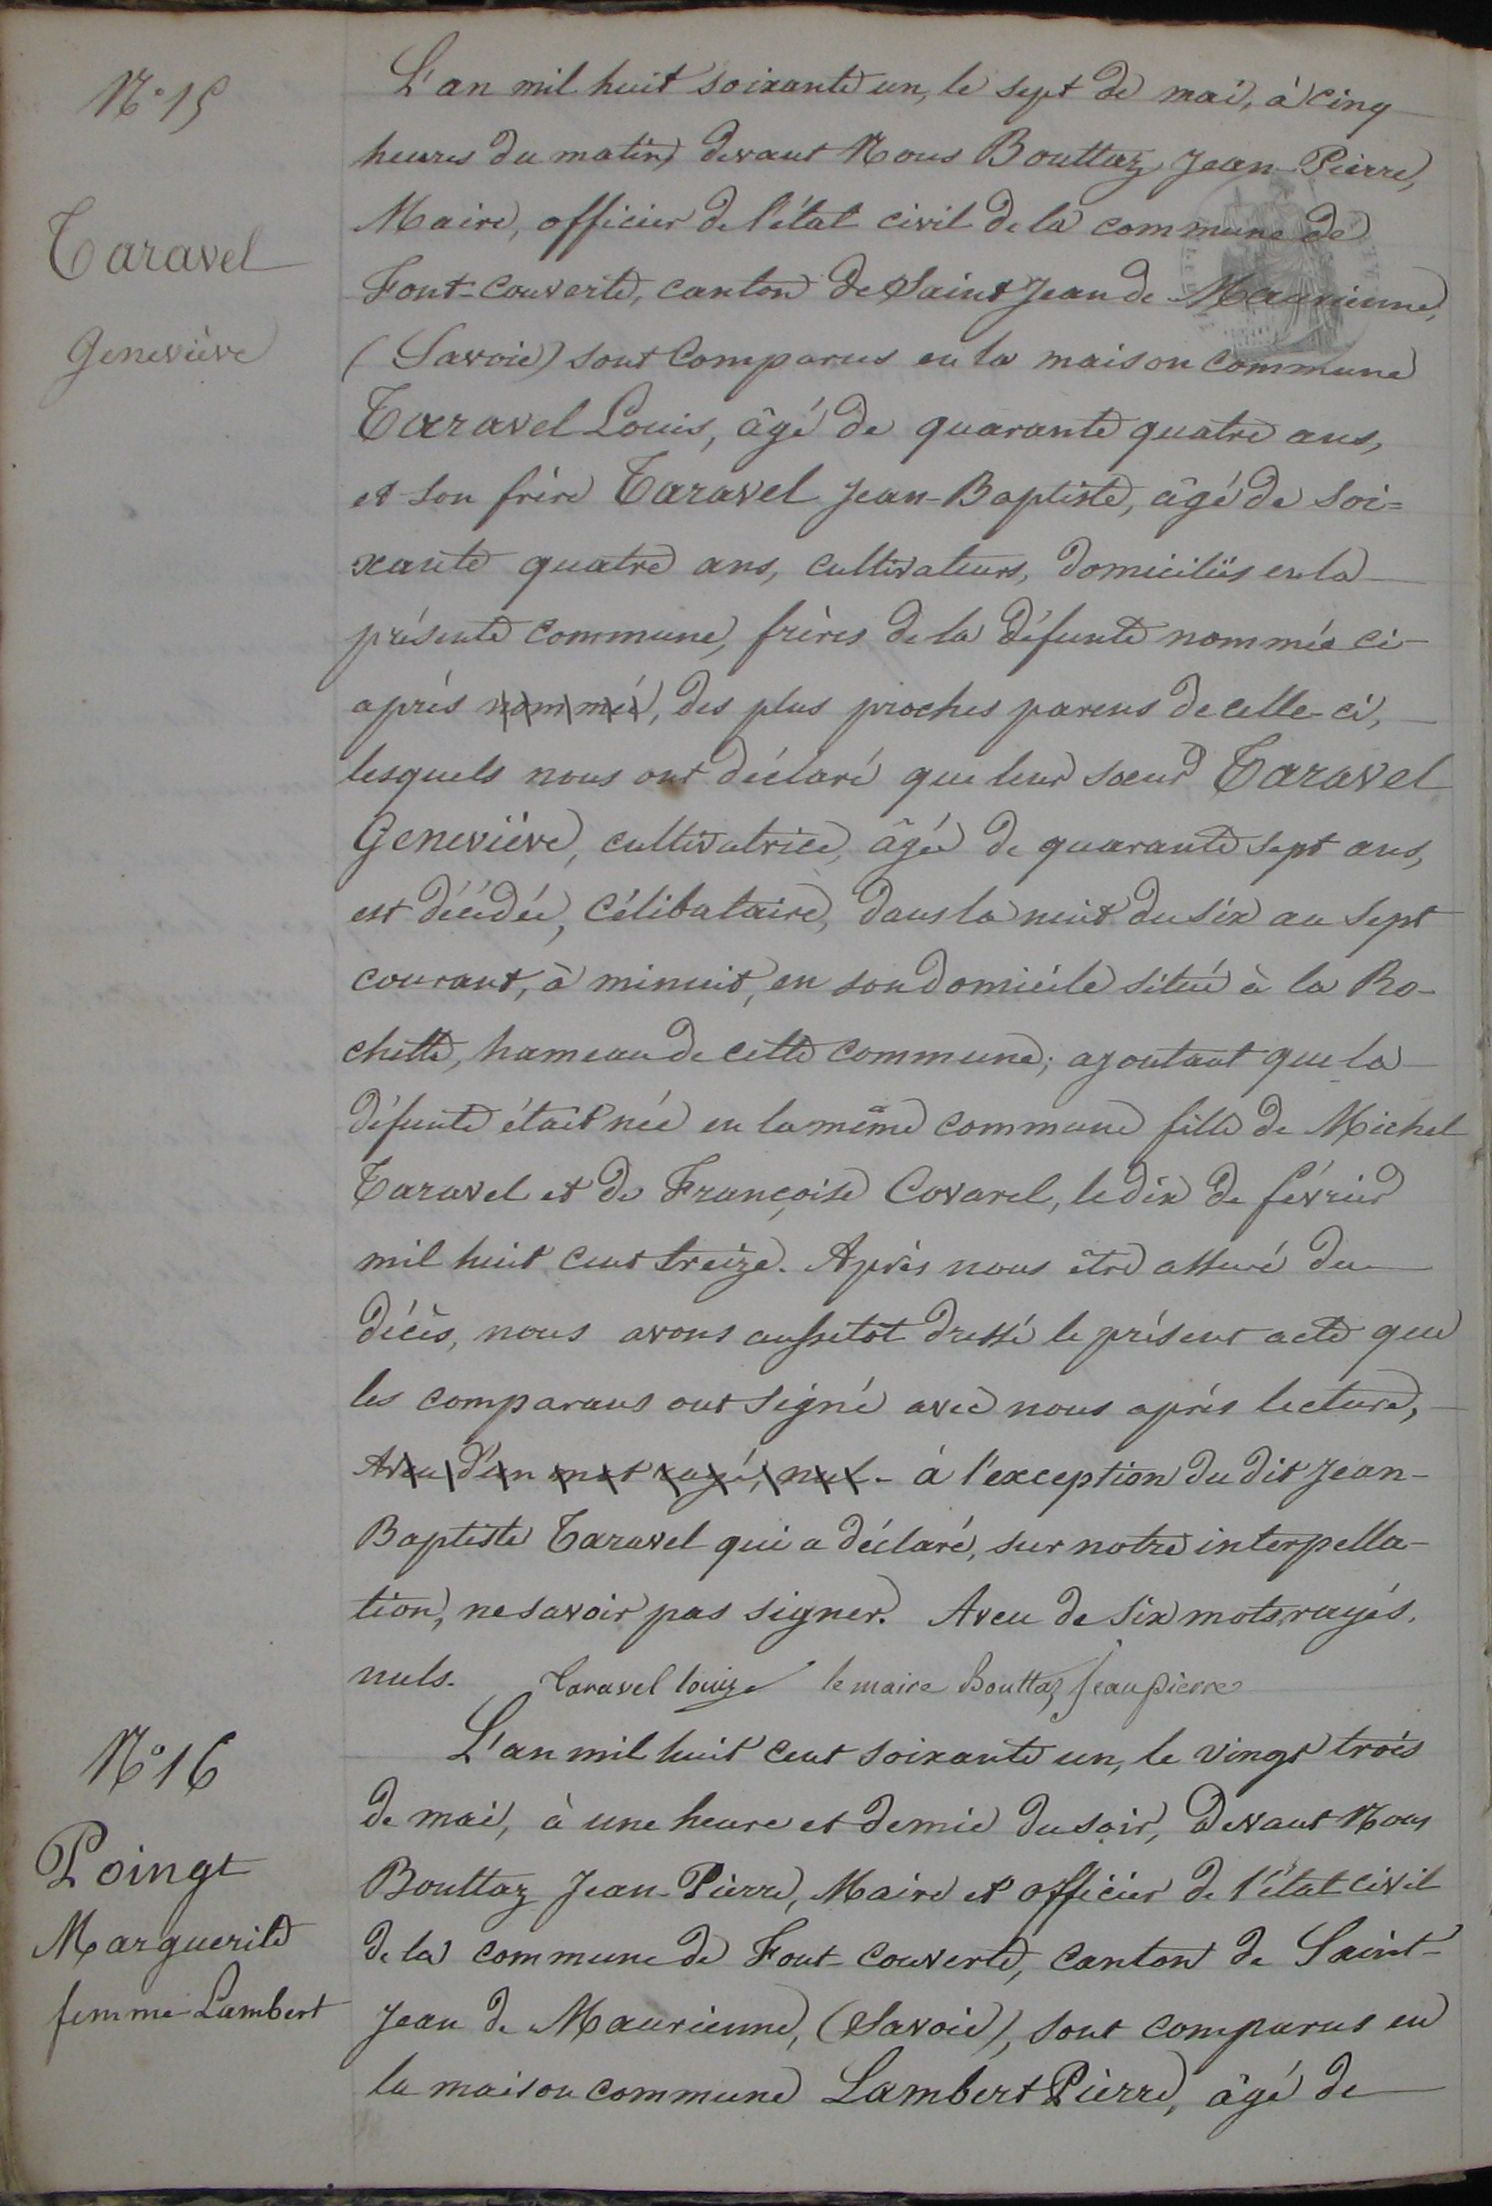 N° 15
Taravel
Geneviève
L'an mil huit soixante un, le sept de mai, à cinq
heures du matin, devant Nous Bouttaz Jean-Pierre,
Maire, officier de l'état civil de la commune de
Font-couverte, canton de Saint Jean de Maurienne,
(Savoie) sont comparus en la maison commune
Taravel Louis, âgé de quarante quatre ans,
et son frère Taravel Jean-Baptiste, âgé de soi=
xante quatre ans, cultivateurs, domiciliés en la
présente commune, frères de la défunte nommée ci-
après nommée, des plus proches parens de celle-ci,
lesquels nous ont déclaré que leur sœur Taravel
Geneviève, cultivatrice, âgée de quarante sept ans,
est décédée, célibataire, dans la nuit du six au sept
courant, à minuit, en son domicile situé à la Ro-
chette, hameau de cette commune; ajoutant que la
défunte était née en la même commune fille de Michel
Taravel et de Françoise Covarel, le dix de février
mil huit cent treize. Après nous être assuré du
décès, nous avons aussitot dressé le présent acte que
les comparans ont signé avec nous après lecture,
Aveu d'un mot rayé, nul - à l'exception du dit Jean-
Baptiste Taravel qui a déclaré, sur notre interpella-
tion, ne savoir pas signer. Aveu de six mots rayés,
nuls. Taravel louis le maire Bouttaz Jean pierre
N° 16
Poingt
Marguerite
femme Lambert
L'an mil huit cent soixante un, le vingt trois
de mai, à une heure et demie du soir, Devant Nous
Bouttaz Jean-Pierre, Maire et officier de l'état civil
de la commune de Font-couverte, canton de Saint-
Jean de Maurienne, (Savoie), sont comparus en
la maison commune Lambert Pierre, âgé de